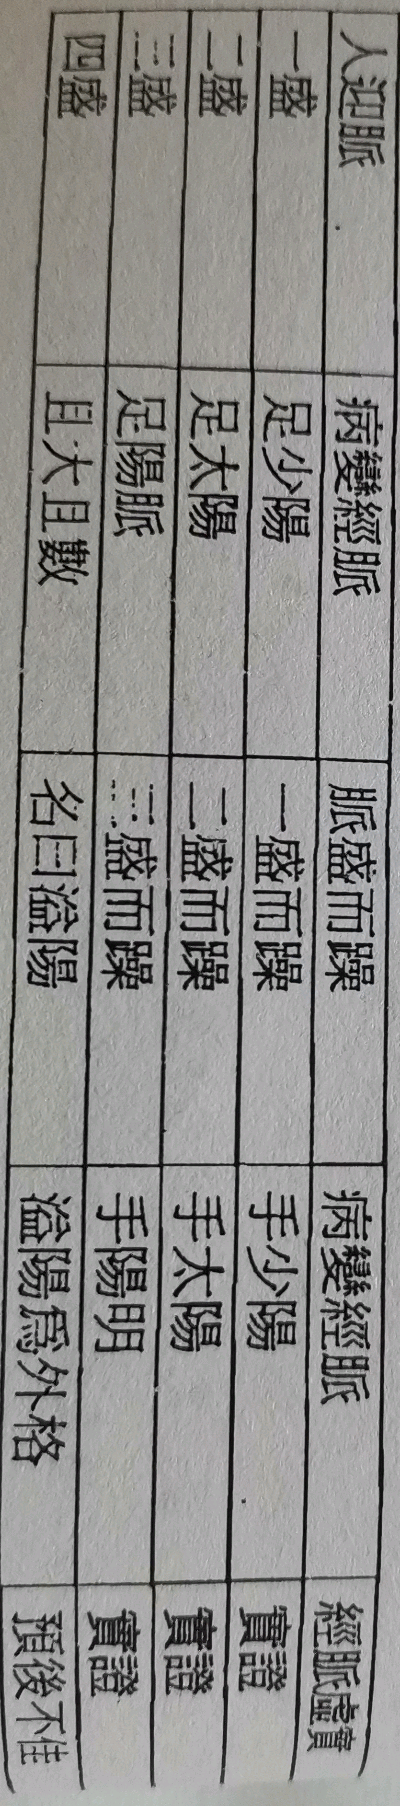 人迎脈 病變經脈 脈盛而躁 病變經脈 經脈虛實
一盛 足少陽 一盛而躁 手少陽 實證
二盛 足太陽 二盛而躁 手太陽 實證
三盛 足陽脈 三盛而躁 手陽明 實證
四盛 且大且數 名曰溢陽 溢陽爲外格 預後不佳